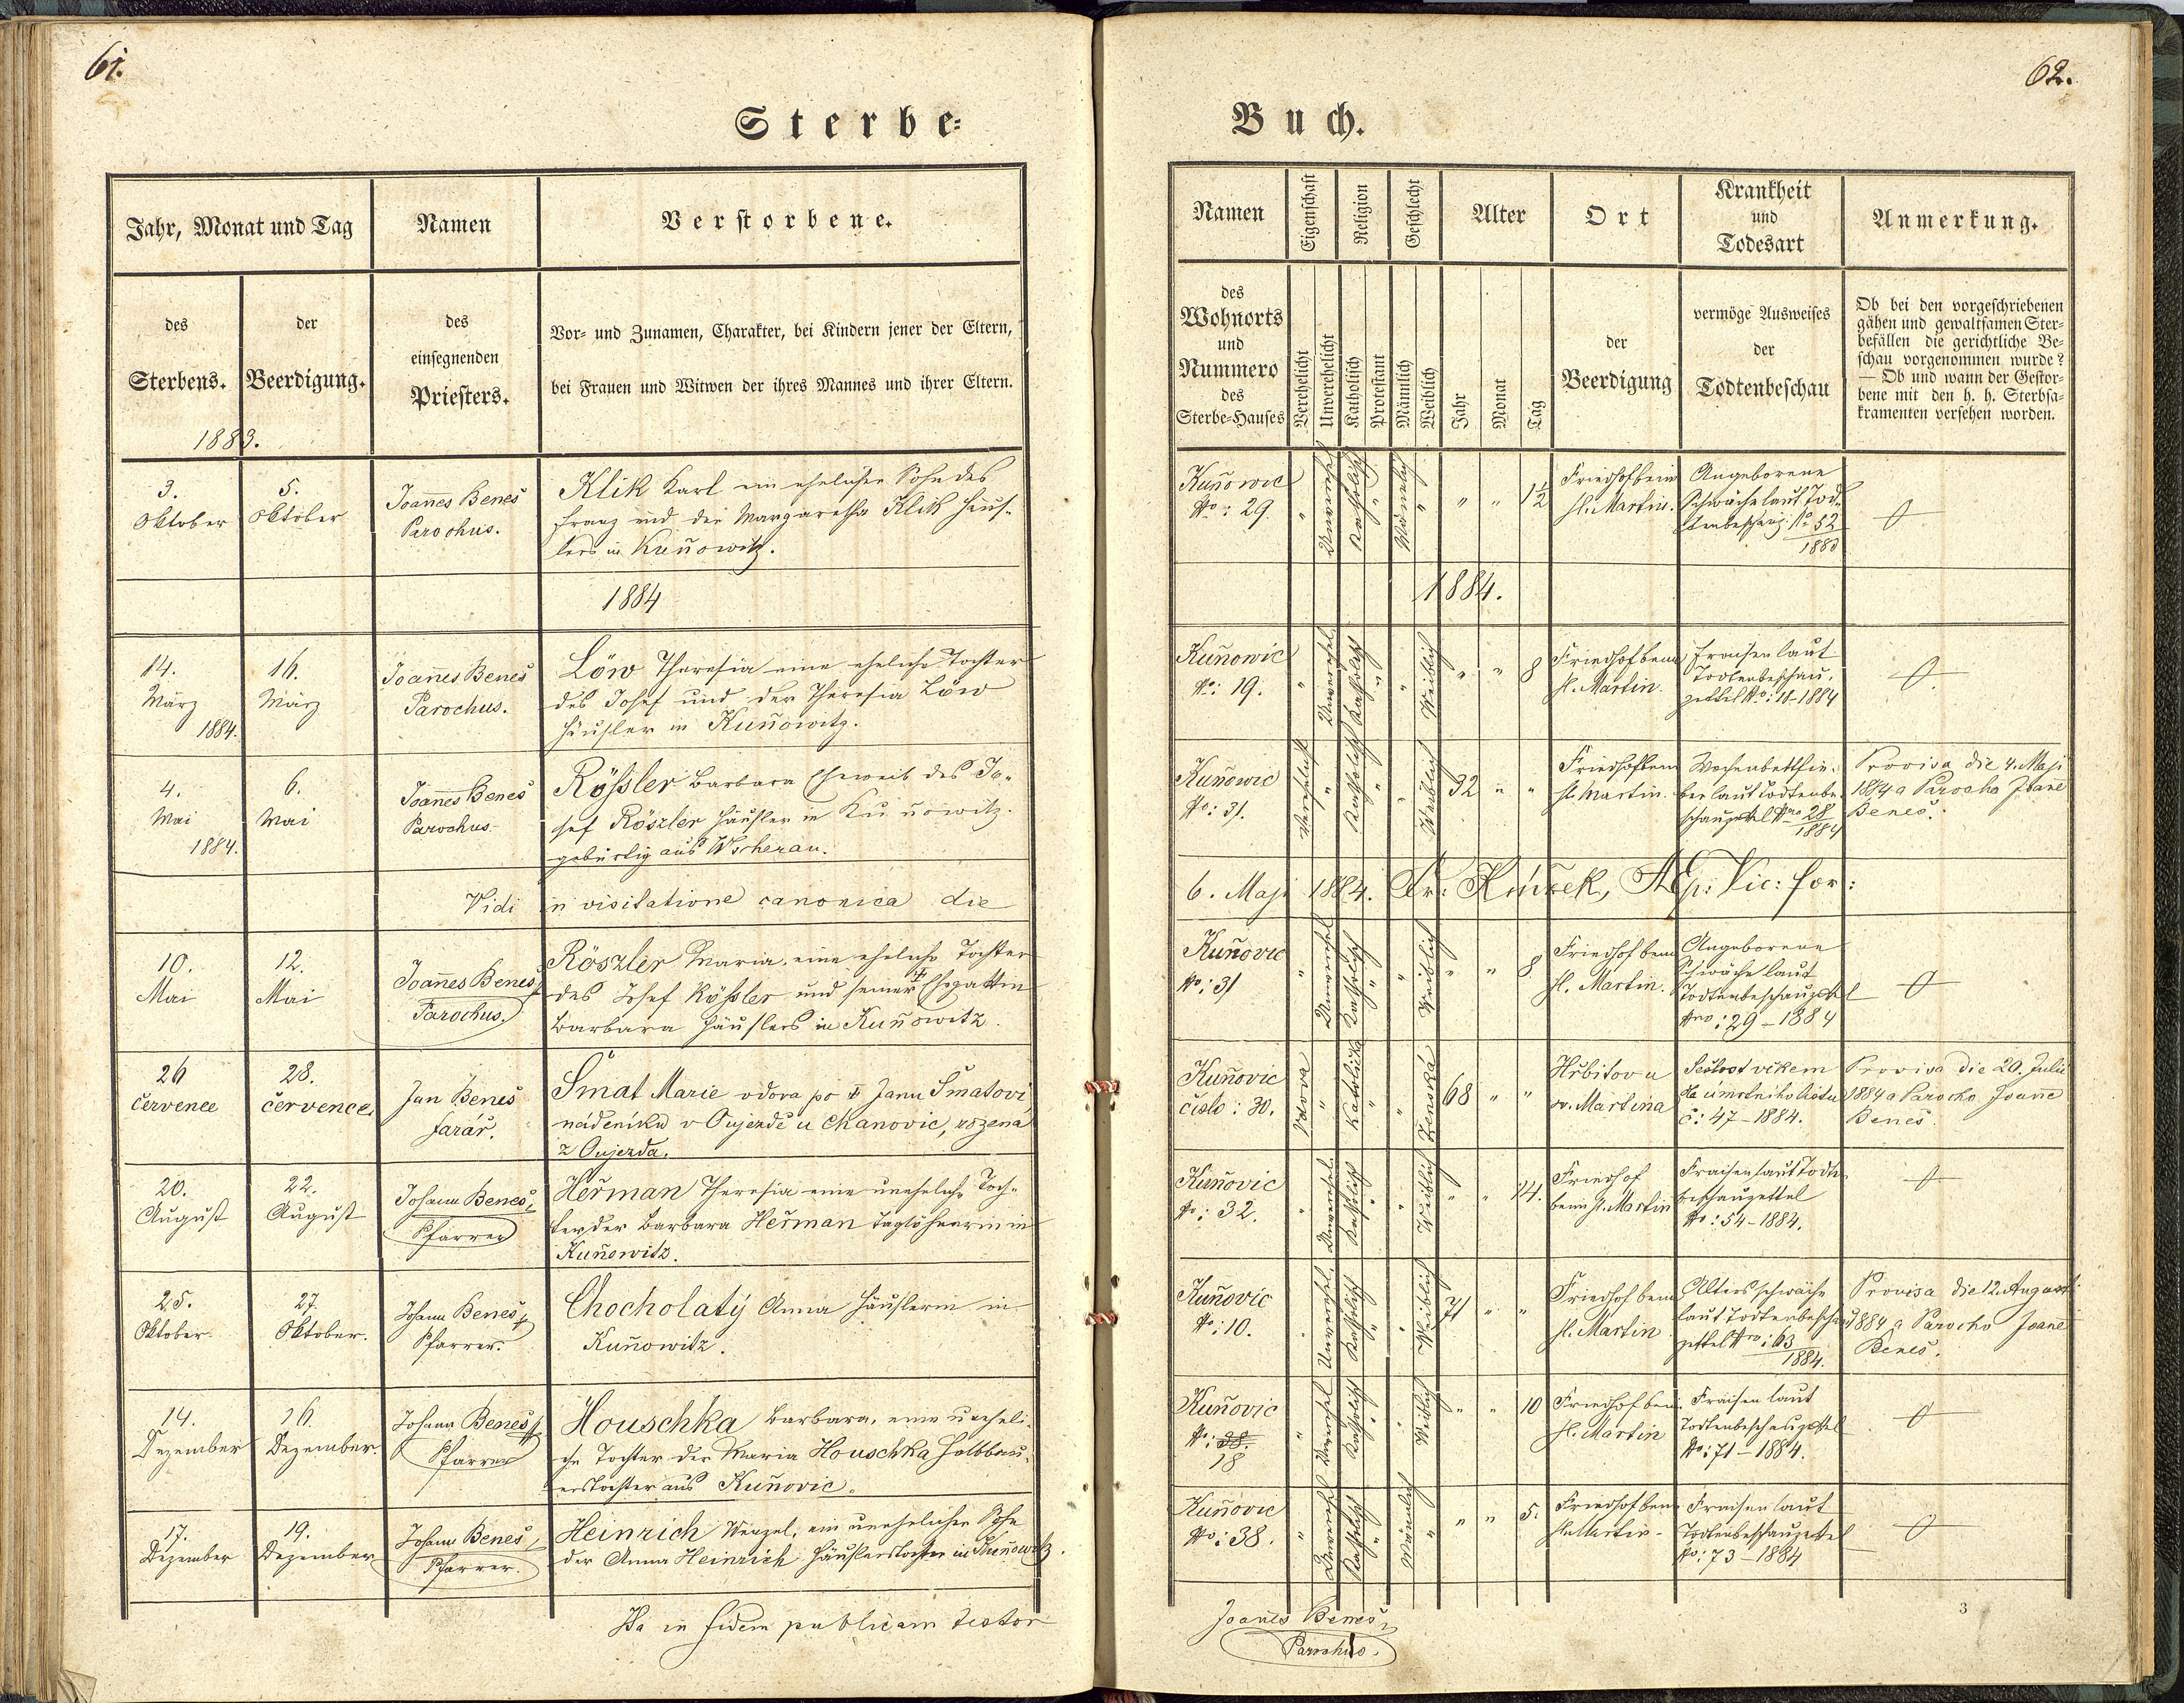 61.
Sterbe=
Jahr, Monat und Tag
Namen
Verstorbene.
des
Sterbens.
der
Beerdigung.
des
einsegnenden
Priesters.
Vor- und Zunamen, Charakter, bei Kindern jener der Eltern,
bei Frauen und Witwen der ihres Mannes und ihrer Eltern.
1883.
3.
Oktober
5.
Oktober
Joanes Beneš
Parochus.
Klik Karl ein ehelicher Sohn des
Franz und der Margaretha Klik Häus-
lers in Kuňowitz.
1884
14.
März
1884.
16.
März
Joanes Beneš
Parochus.
Löw Theresia eine eheliche Tochter
des Josef und der Theresia Löw
Häusler in Kuňowitz.
4.
Mai
1884.
6.
Mai
Joanes Beneš
Parochus
Rößler Barbara Eheweib des Jo-
sef Röszler Häusler in Kuňowitz.
gebürtig aus Wscherau.
Vidi in visitatione canonica die
10.
Mai
12.
Mai
Joanes Beneš
Parochus.
Röszler Maria, eine eheliche Tochter
des Josef Rößler und seiner Ehegattin
Barbara Häuslers in Kuňowitz.
26
červenec
28.
července.
Jan Beneš
farář.
Šmat Marie vdova po ‡ Janu Šmatovi
nádeníku v Oujezdě u Chanovic, rozená
z Oujezda.
20.
August
22.
August
Johann Beneš
Pfarrer
Heřman Theresia eine uneheliche Toch-
ter der Barbara Heřman Taglöhnerin in
Kuňowitz.
25.
Oktober
27.
Oktober.
Johann Beneš
Pfarrer.
Chocholatý Anna Häuslerin in
Kuňowitz.
14.
Dezember
16.
Dezember.
Johann Beneš
Pfarrer
Houschka Barbara, eine uneheli-
che Tochter der Maria Houschka Halbbau-
erstochter aus Kuňovic.
17.
Dezember
19.
Dezember
Johann Beneš
Pfarrer.
Heinrich Wenzel, ein unehelicher Sohn
der Anna Heinrich Häuslerstochter in Kuňowitz.
Ita in fidem publicam testor
62.
Buch.
Namen
Eigenschaft
Religion
Geschlecht
Alter
Ort
Krankheit
und
Todesart
Anmerkung.
des
Wohnorts
und
Nummero
des
Sterbe-Hauses
Verehelicht
Unverehelicht
Katholisch
Protestant
Männlich
Weiblich
Jahr
Monat
Tag
der
Beerdigung
vermöge Ausweises
der
Todtenbeschau
Ob bei den vorgeschriebenen
gähen und gewaltsamen Ster-
befällen die gerichtliche Be-
schau vorgenommen wurde?
— Ob und wann der Gestor-
bene mit den h. h. Sterbsa-
kramenten versehen worden.
Kuňowic
No: 29.
" Unverehel Katholisch " Männlich " " " 1½
Friedhof beim
hl. Martin.
Angeborene
Schwäche laut Tod-
tenbeschauz. No 52
1883
1884.
Kuňowic
No: 19.
" Unverehel. Katholisch " " Weiblich " " 8
Friedhof beim
hl. Martin.
Fraisen laut
Todtenbeschau-
zettel No: 16-1884
Kuňowic
No: 31.
Verehelicht " Katholisch " " Weiblich 32 " "
Friedhof beim
hl. Martin.
Wochenbettfie-
ber laut Todtenbe-
schauzettel Nro 28
1884
Provisa die 4. Maji
1884 a Parocho Joane
Beneš.
6. Maji 1884. Vic: for:
Kuňovic
No: 31
" Unverehel Katholisch " " Weiblich " " 8
Friedhof beim
hl. Martin.
Angeborene
Schwäche laut
Todtenbeschauzettel
Nro: 29-1884
Kuňovic
číslo: 30.
Vdova " Katolická " " Ženská 68 " "
Hřbitov u
sv. Martina
Sešlost věkem
dle úmrtního listu
č: 47-1884.
Provisa die 20. Julii
1884 a Parocho Joanne
Beneš.
Kuňovic
No: 32.
" Unverehel. Katholisch " " Weiblich " " 14.
Friedhof
beim hl. Martin
Fraisen laut Todten-
beschauzettel
No: 54-1884.
Kuňovic
No: 10.
" Unverehel. Katholisch " " Weiblich 71 " "
Friedhof beim
hl. Martin
Altersschwäche
laut Todtenbeschau-
zettel Nro: 63
1884.
Provisa die 12. Augusti
1884 a Parocho Joane
Beneš.
Kuňovic
No: 38.
18
" Unverehel Katholisch " " Weiblich " " 10
Friedhof beim
hl. Martin
Fraisen laut
Todtenbeschauzettel
No: 71-1884.
Kuňovic
No: 38.
" Unverehel Katholisch " Männlich " " " 5.
Friedhof beim
hl. Martin
Fraisen laut
Todtenbeschauzettel
No: 73-1884
Joanes Beneš
Parochus.
3